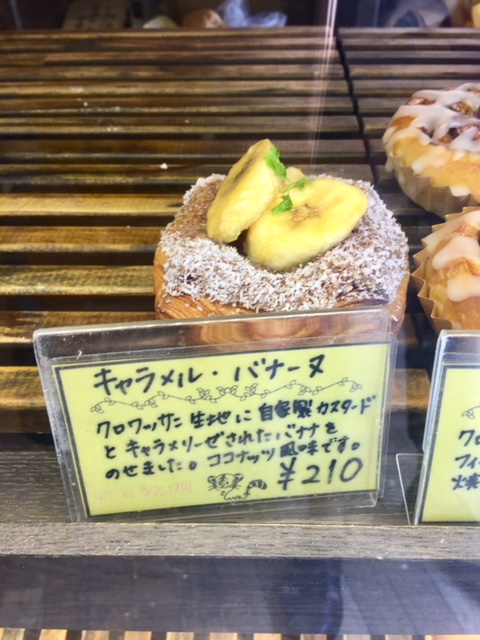 キャラメル・バナーヌ
クロワッサン生地に自家製カスタード
とキャラメリーゼされたバナナを
のせました。ココナッツ風味です。
¥210
クロ
フィ
焼